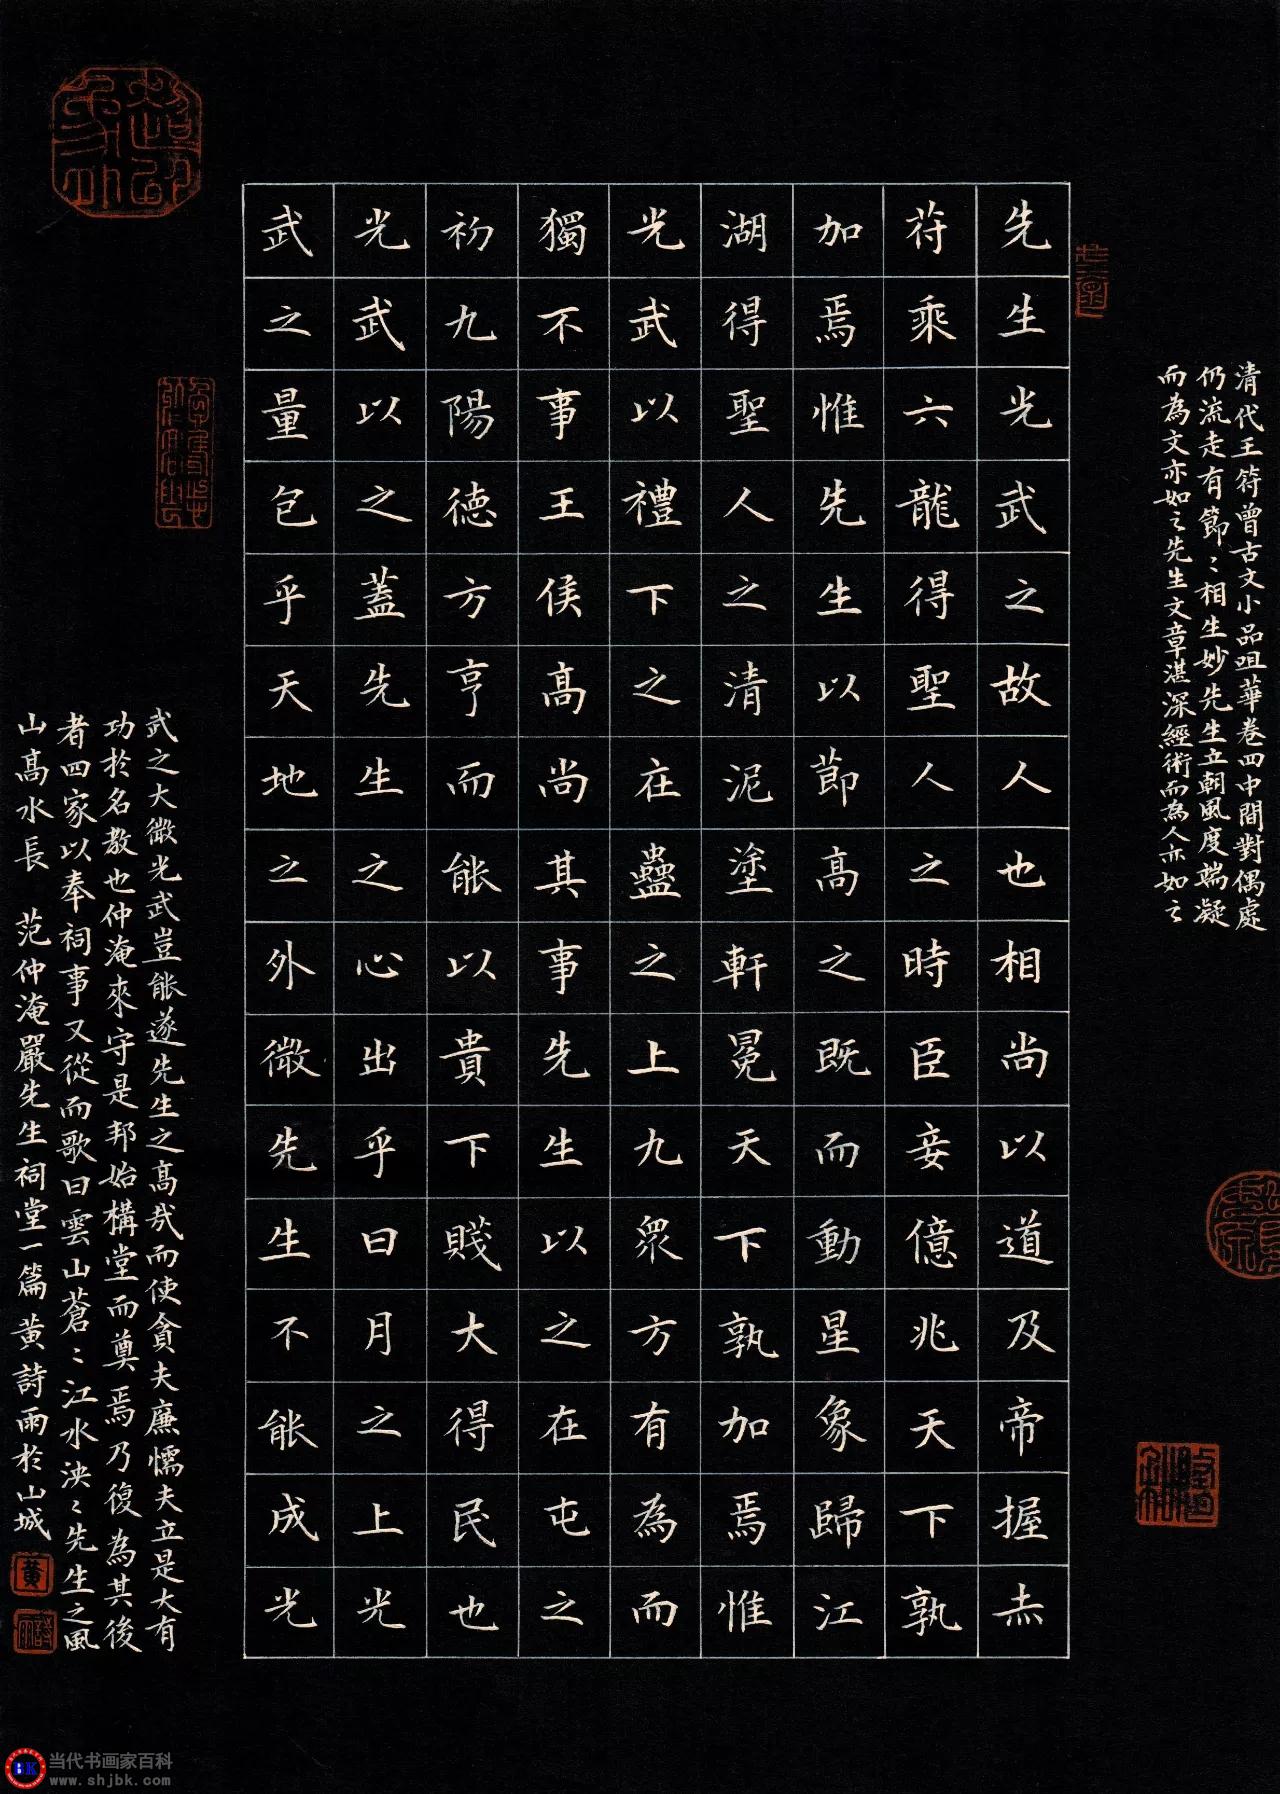 先生光武之故人也相尚以道及帝握赤
符乘六龍得聖人之時臣妾億兆天下孰
加焉惟先生以節高之既而動星象歸江
湖得聖人之清泥塗軒冕天下孰加焉惟
光武以禮下之在蠱之上九眾方有為而
獨不事王侯高尚其事先生以之在屯之
初九陽德方亨而能以貴下賤大得民也
光武以之蓋先生之心出乎日月之上光
武之量包乎天地之外微先生不能成光
武之大微光武豈能遂先生之高哉而使貪夫廉懦夫立是大有
功於名教也仲淹來守是邦始構堂而奠焉乃復為其後
者四家以奉祠事又從而歌曰雲山蒼〻江水泱〻先生之風
山高水長 范仲淹嚴先生祠堂一篇黃詩雨於山城
清代王符曾古文小品咀華卷四中間對偶處
仍流走有節〻相生妙先生立朝風度端凝
而為文亦如之先生文章湛深經術而為人亦如之
黃
詩雨
BK
当代书画家百科
www.shjbk.com